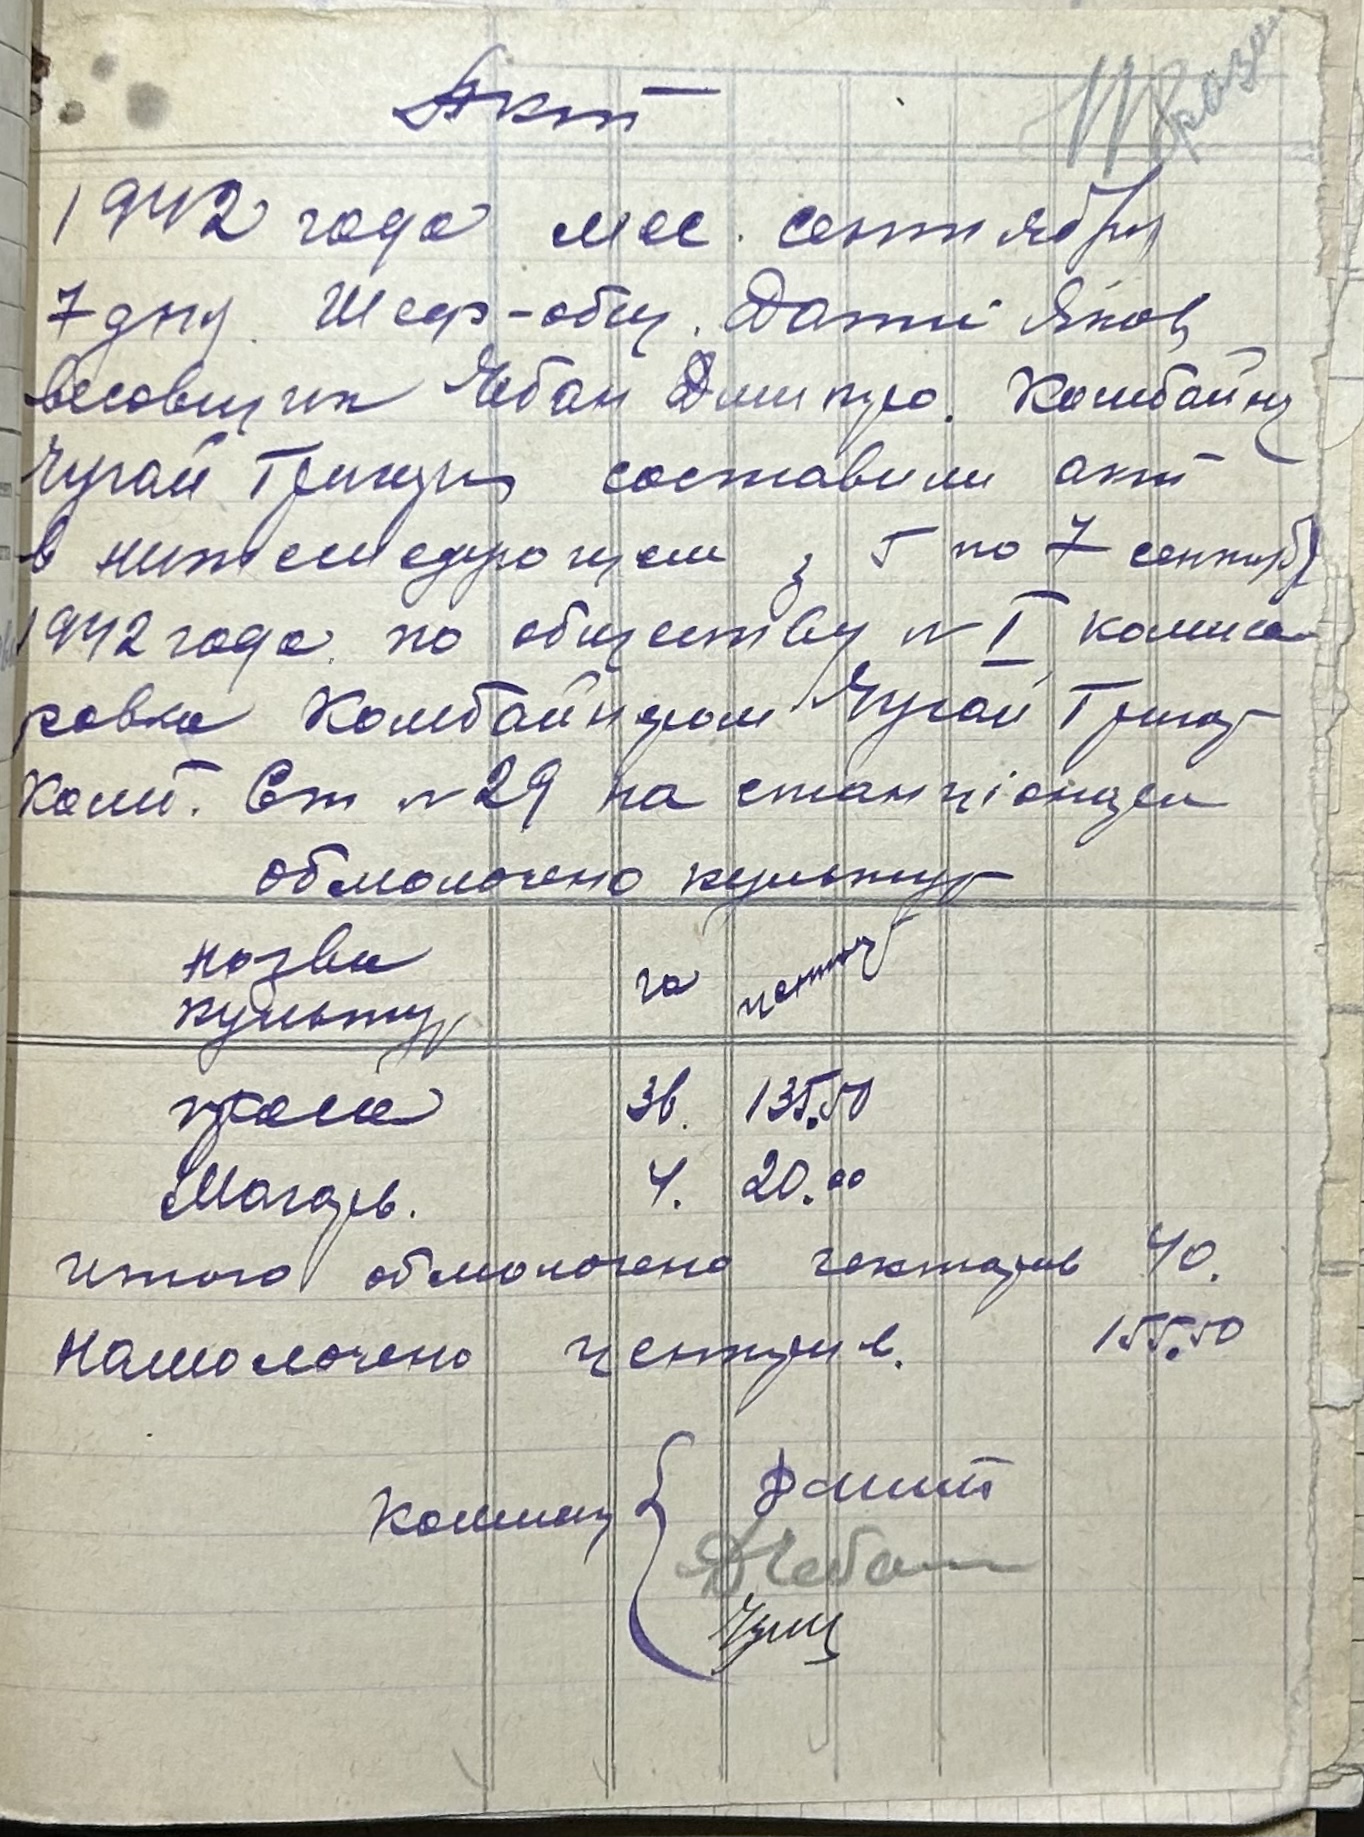 Акт
1942 года мес. сентября
7 дня Шеф-общ. Яков
весовщик Чебан Дмитро. Комбайнер
Чугай Григори составили акт
в нижеследующем з 5 по 7 сентября
1942 года по обществу № I комиса
ровка Комбайнером Чугай Григор
Комб. Ст № 29 на станціонцем
обмолочено культур
назва
культур га центнер
проса 36. 135.50
Могар. 4. 20.00
итого обмолочено гектарив 40.
Намолочено центнрив. 155.50
Комисия
ДЧебан